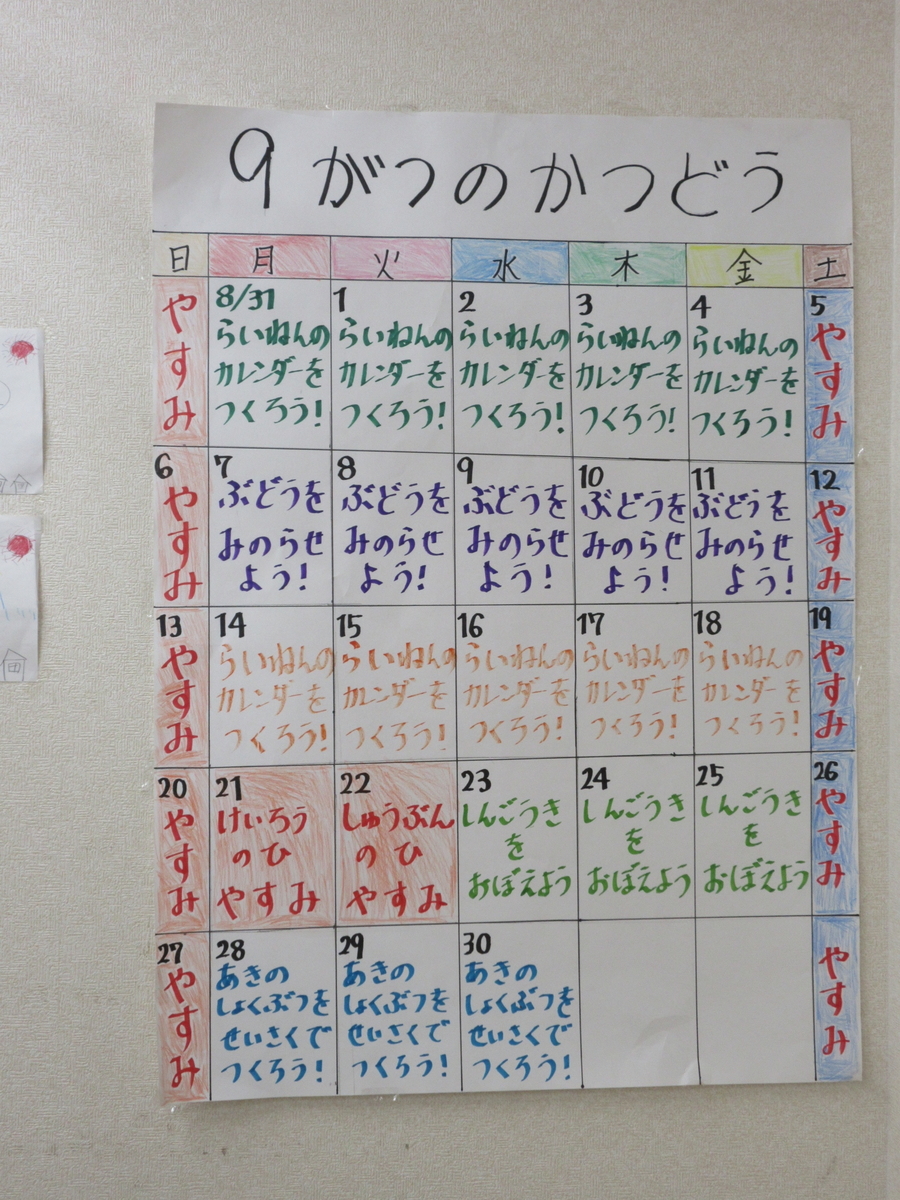 9がつのかつどう
日 月 火 水 木 金 土
やすみ
8/31
らいねんの
カレンダーを
つくろう!
1
らいねんの
カレンダーを
つくろう!
2
らいねんの
カレンダーを
つくろう!
3
らいねんの
カレンダーを
つくろう!
4
らいねんの
カレンダーを
つくろう!
5
やすみ
6
やすみ
7
ぶどうを
みのらせ
よう!
8
ぶどうを
みのらせ
よう!
9
ぶどうを
みのらせ
よう!
10
ぶどうを
みのらせ
よう!
11
ぶどうを
みのらせ
よう!
12
やすみ
13
やすみ
14
らいねんの
カレンダーを
つくろう!
15
らいねんの
カレンダーを
つくろう!
16
らいねんの
カレンダーを
つくろう!
17
らいねんの
カレンダーを
つくろう!
18
らいねんの
カレンダーを
つくろう!
19
やすみ
20
やすみ
21
けいろう
のひ
やすみ
22
しゅうぶん
のひ
やすみ
23
しんごうき
を
おぼえよう
24
しんごうき
を
おぼえよう
25
しんごうき
を
おぼえよう
26
やすみ
27
やすみ
28
あきの
しょくぶつを
せいさくで
つくろう!
29
あきの
しょくぶつを
せいさくで
つくろう!
30
あきの
しょくぶつを
せいさくで
つくろう!
やすみ